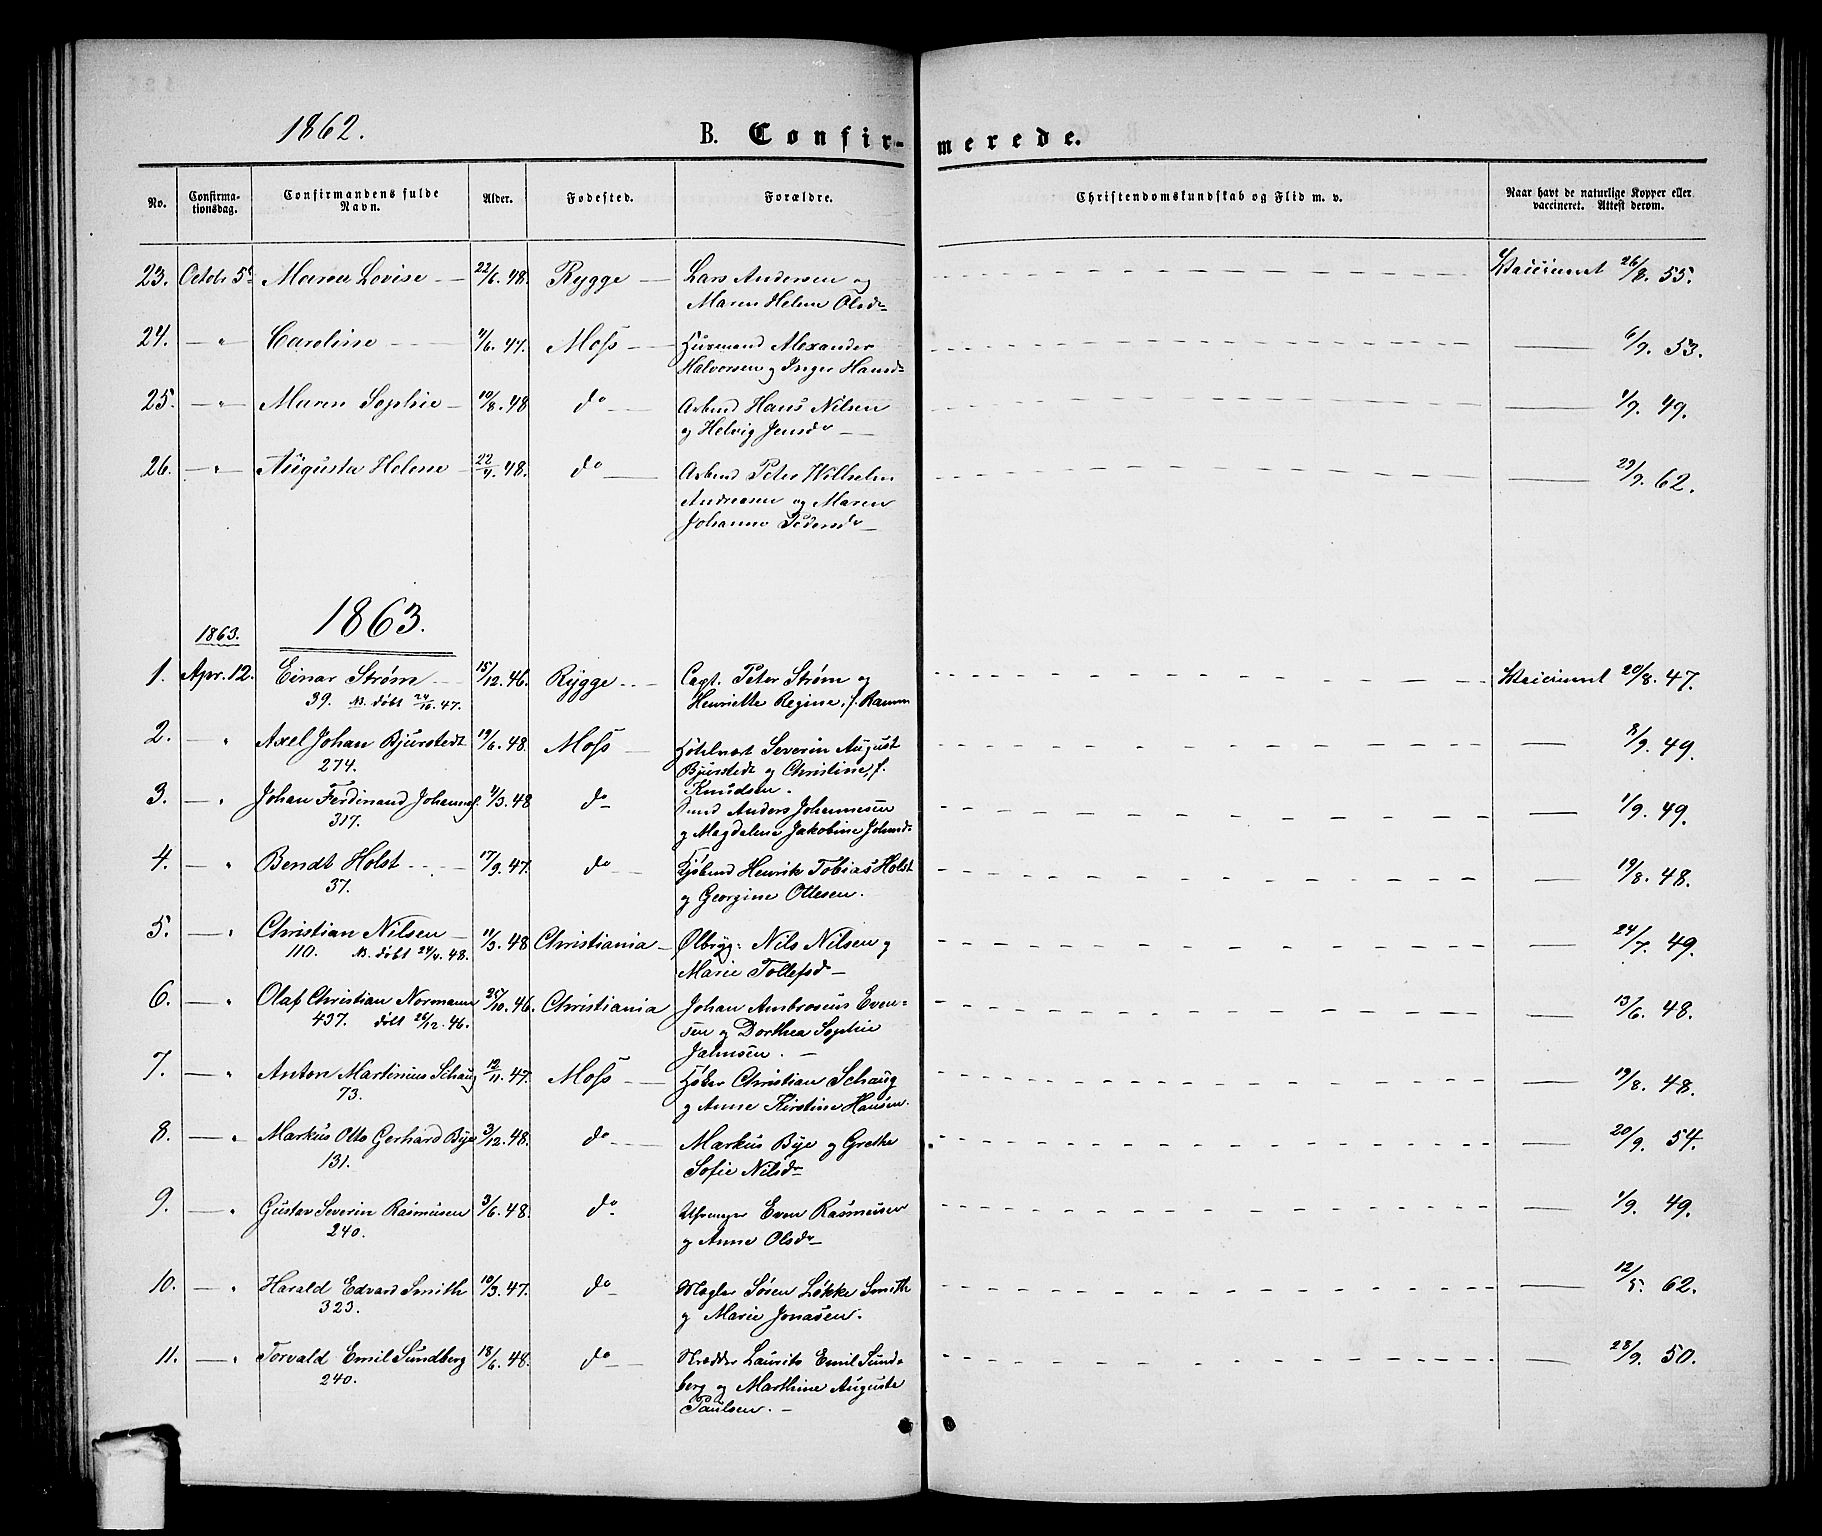 1862.
B. Confir-
merede.
No.
Confirma-
tionsdag.
Confirmandens fulde
Navn.
Alder.
Fødested.
Forældre.
Christendomskundskab og Flid m. v.
Naar havt de naturlige Kopper eller
vaccineret. Attest derom.
23. Octobr 5te Maren Lovise 22/6. 48. Rygge Lars Andersen og Vaccineret 26/8. 55.
Maren Helene Olsdr
24. " Caroline 4/6. 47. Moss Husmand Alexander 6/9. 53.
Halvorsen og Inger Hansdr
25. " Maren Sophie 10/8. 48 do Arbmd Hans Nilsen 1/9. 49.
og Helvig Jensdr
26. " Augusta Helene 22/4. 48. do Arbmd Peter Wilhelm 29/9. 62.
Andreasen og Maren
Johanne Pedersdr
1863.
1863.
1. Apr. 12. Einar Strøm 15/12. 46. Rygge Capt. Peter Strøm og Vaccineret 20/8. 47.
39. NB. døbt 24/10. 47. Henriette Regine, f. Ramm
2. " Axel Johan Bjurstedt 19/6. 48. Moss Severin August 2/9. 49.
274. Bjurstedt og Christine, f.
Knudsen.
3. " Johan Ferdinand Johannes. 4/3. 48 do Anders Johannesen 1/9. 49.
317. og Magdalene Jakobine Johnsdr
4. " Bendt Holst 17/9. 47. do Kjøbmd Henrik Tobias Holst 19/8. 48.
37. og Georgine Ottesen.
5. " Christian Nilsen 11/3. 48 Christiania Ølbryg: Nils Nilsen og 24/7. 49.
110. NB. døbt 24/4. 48. Marie Tollefsd
6. " Olaf Christian Normann 25/10. 46. Christiania Johan Ambrosius Even- 13/6. 48.
437. døbt 26/12. 46. sen og Dorthea Sophie
Jahnsen.
7. " Anton Martinius Schaug 12/11. 47. Moss Høker Christian Schaug 19/8. 48.
73. og Anne Kirstine Hansen.
8. " Markus Otto Gerhard Bye 3/12. 48. do Markus Bye og Grethe 20/9. 54.
131. Sofie Nilsdr
9. " Gustav Severin Rasmusen 3/6. 48. do Even Rasmusen 1/9. 49.
240. og Anne Olsdr
10. " Harald Edvard Smith 10/3. 47. do Mægler Søren Løkke Smith 12/5. 62.
323. og Marie Jonasen.
11. " Torvald Emil Sundberg 18/6. 48. do Skrædder Laurits Emil Sund- 28/9. 50.
240. berg og Marthine Augusta
Paulsen.